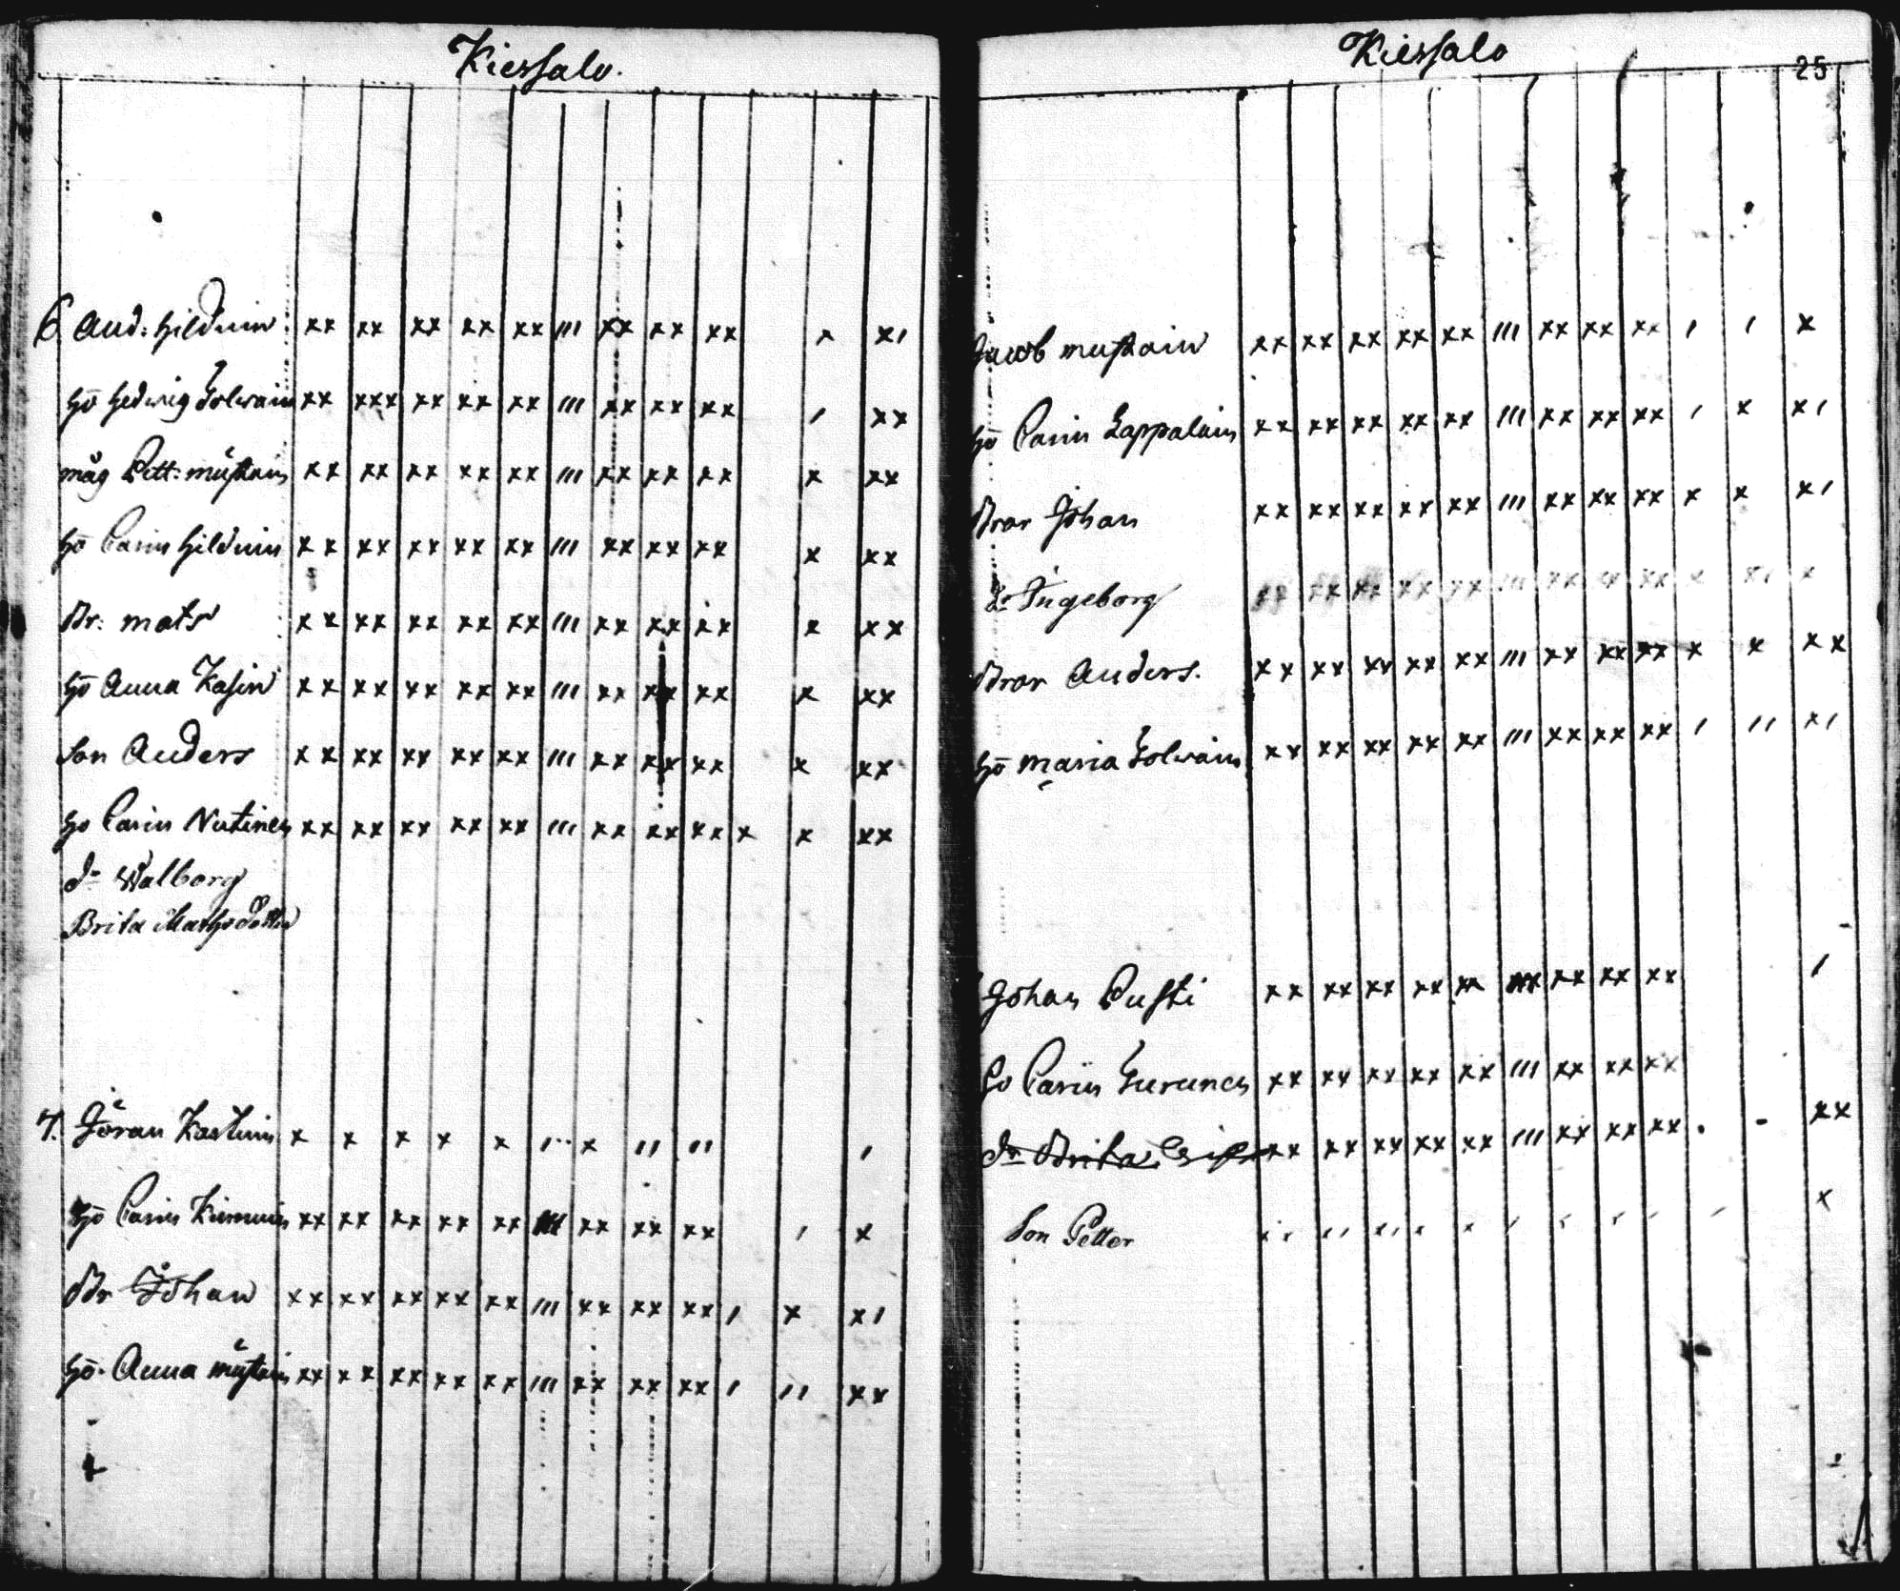 Kiessalo.
6 And: Hilduin xx xx xx xx xx ııı xx xx xx x xı
Hō Hedvig Tolvain xx xxx xx xx xx ııı xx xx xx ı xx
måg Pett: mustain xx xx xx xx xx ııı xx xx xx x xx
Hō Carin Hilduin xx xx xx xx xx ııı xx xx xx x xx
Br: mats xx xx xx xx xx ııı xx xx xx x xx
Hō Anna Kasin xx xx xx xx xx ııı xx xx xx x xx
Son Anders xx xx xx xx xx ııı xx xx xx x xx
Ho Carin Nutinen xx xx xx xx xx ııı xx xx xx x x xx
dr Walborg
Brita Mattsdotter
7. Göran x x x x x ı x ıı ıı ı
Hō Carin xx xx xx xx xx ııı xx xx xx ı x
Br Johan xx xx xx xx xx ııı xx xx xx ı x xı
Hō. Anna mustain xx xx xx xx xx ııı xx xx xx ı ıı xx
Kiessalo
25
Jacob mustain xx xx xx xx xx ııı xx xx xx ı ı x
Hō Carin Lappalain xx xx xx xx xx ııı xx xx xx ı x xı
Bror Johan xx xx xx xx xx ııı xx xx xx x x xı
Ingeborg xx xx xx xx xx ııı xx xx xx x xı x
Bror Anders. xx xx xx xx xx ııı xx xx xx x x xx
Hō maria Tolvain xx xx xx xx xx ııı xx xx xx ı ıı xı
Johan Pusti xx xx xx xx xx ııı xx xx xx ı
Ho Carin Turunen xx xx xx xx xx ııı xx xx xx
dr Brita xx xx xx xx xx ııı xx xx xx . - xx
Son Petter x